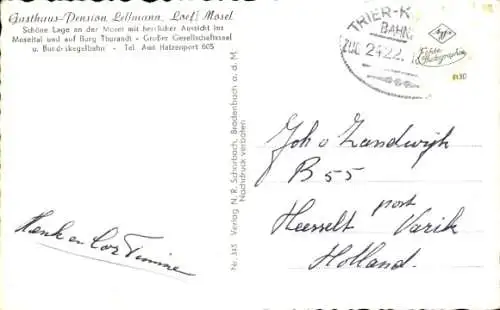 Gasthaus-Pension Lellmann, Loef/Mosel
Schöne Lage an der Mosel mit herrlicher Aussicht ins
Moseltal und auf Burg Thurandt - Großer Gesellschaftssaal
u. Bundeskegelbahn - Tel. Amt Hatzenport 605
TRIER-K
BAHN
ZUG 2422
Agfa
Echte
Photographie
Nr. 345 Verlag N. R. Schorbach, Brodenbach a. d. M.
Nachdruck verboten
Joh v Zandwijk
B 55
Heesselt post Varik
Holland.
Henk en Cor Timine